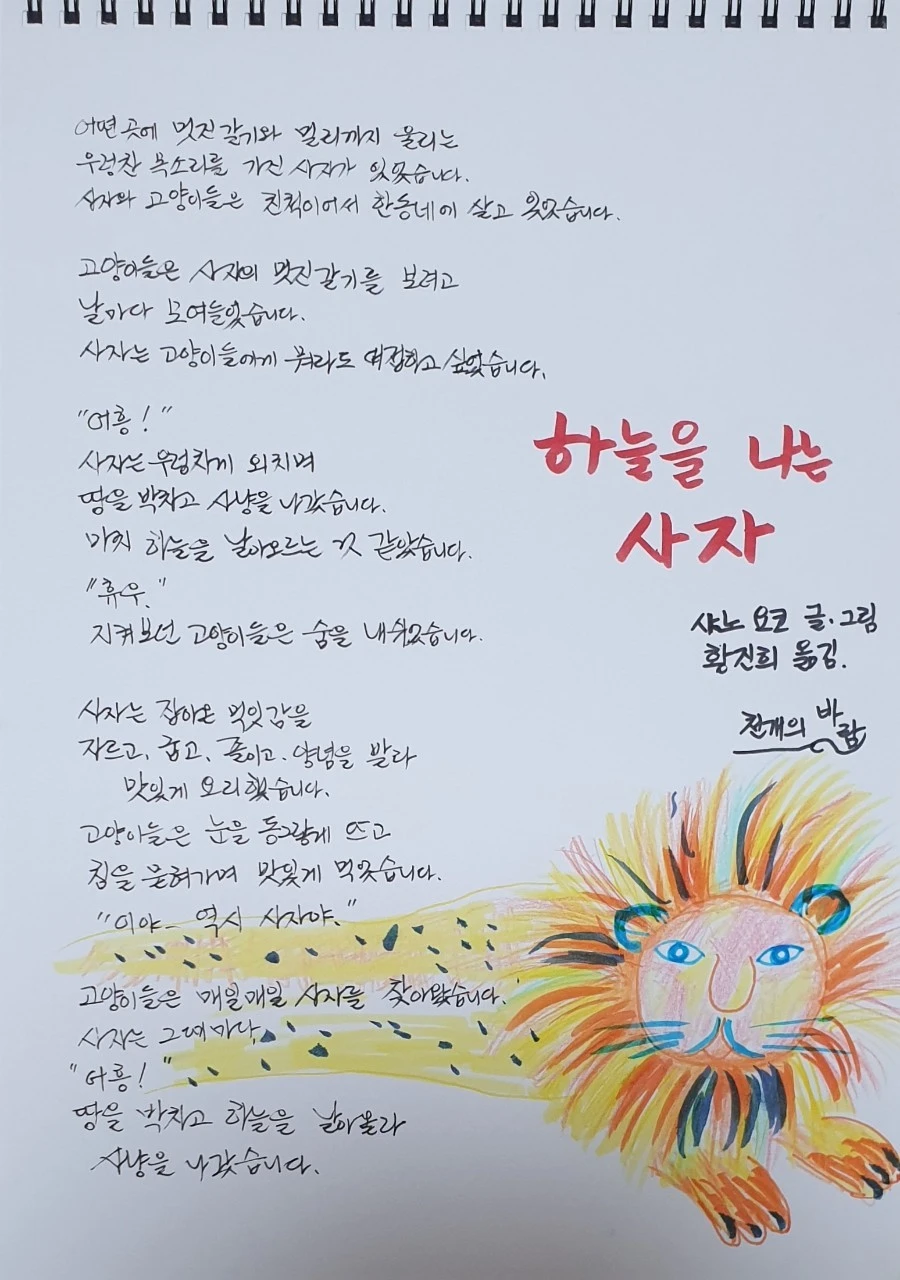 어떤 곳에 멋진 갈기와 멀리까지 울리는
우렁찬 목소리를 가진 사자가 있었습니다.
사자와 고양이들은 친척이어서 한동네에 살고 있었습니다.
고양이들은 사자의 멋진 갈기를 보려고
날마다 모여들었습니다.
사자는 고양이들에게 뭐라도 대접하고 싶었습니다.
"어흥!"
사자는 우렁차게 외치며
땅을 박차고 사냥을 나갔습니다.
마치 하늘을 날아오르는 것 같았습니다.
"휴우."
지켜보던 고양이들은 숨을 내쉬었습니다.
사자는 잡아온 먹잇감을
자르고, 굽고, 졸이고, 양념을 발라
맛있게 요리했습니다.
고양이들은 눈을 동그랗게 뜨고
침을 묻혀가며 맛있게 먹었습니다.
"이야- 역시 사자야."
고양이들은 매일매일 사자를 찾아왔습니다.
사자는 그때마다,
"어흥!"
땅을 박차고 하늘을 날아올라
사냥을 나갔습니다.
하늘을 나는
사자
사노 요코 글·그림
황진희 옮김.
천개의 바람